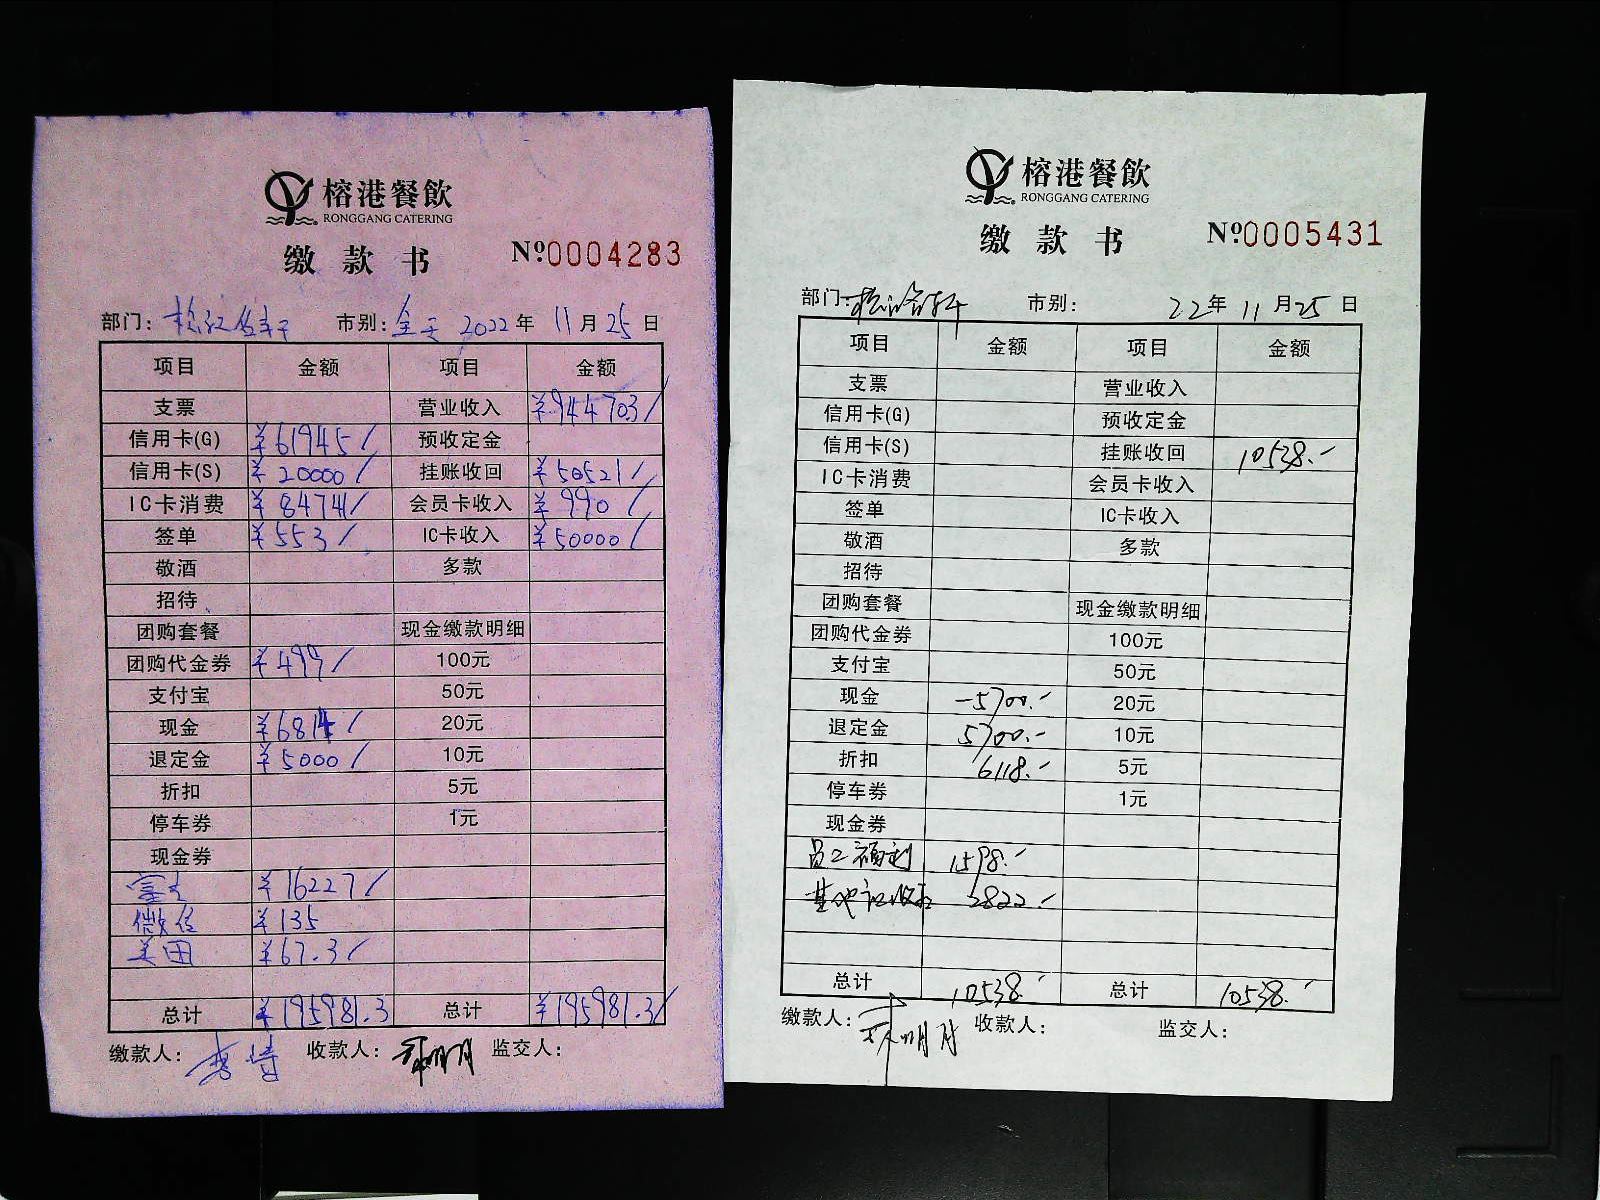 榕港餐飲
RONGGANG CATERING
缴款书 №0004283
部门: 市别:全天 2022年 11月25日
项目 金额 项目 金额
支票 营业收入 ¥94470.3/
信用卡(G) ¥61945/ 预收定金
信用卡(S) ¥20000/ 挂账收回 ¥50521/
IC卡消费 ¥84741/ 会员卡收入 ¥990/
签单 ¥553/ IC卡收入 ¥50000/
敬酒 多款
招待
团购套餐 现金缴款明细
团购代金券 ¥499/ 100元
支付宝 50元
现金 ¥6814/ 20元
退定金 ¥5000/ 10元
折扣 5元
停车券 1元
现金券
¥16227/
微信 ¥135
美团 ¥67.3/
总计 ¥195981.3 总计 ¥195981.3/
缴款人: 收款人: 监交人:
榕港餐飲
RONGGANG CATERING
缴款书 №0005431
部门: 市别: 22年 11月25日
项目 金额 项目 金额
支票 营业收入
信用卡(G) 预收定金
信用卡(S) 挂账收回 10538.-
IC卡消费 会员卡收入
签单 IC卡收入
敬酒 多款
招待
团购套餐 现金缴款明细
团购代金券 100元
支付宝 50元
现金 -5700.- 20元
退定金 5700.- 10元
折扣 6118.- 5元
停车券 1元
现金券
员工福利 1598.-
2822.-
总计 10538.- 总计 10538.-
缴款人: 收款人: 监交人: